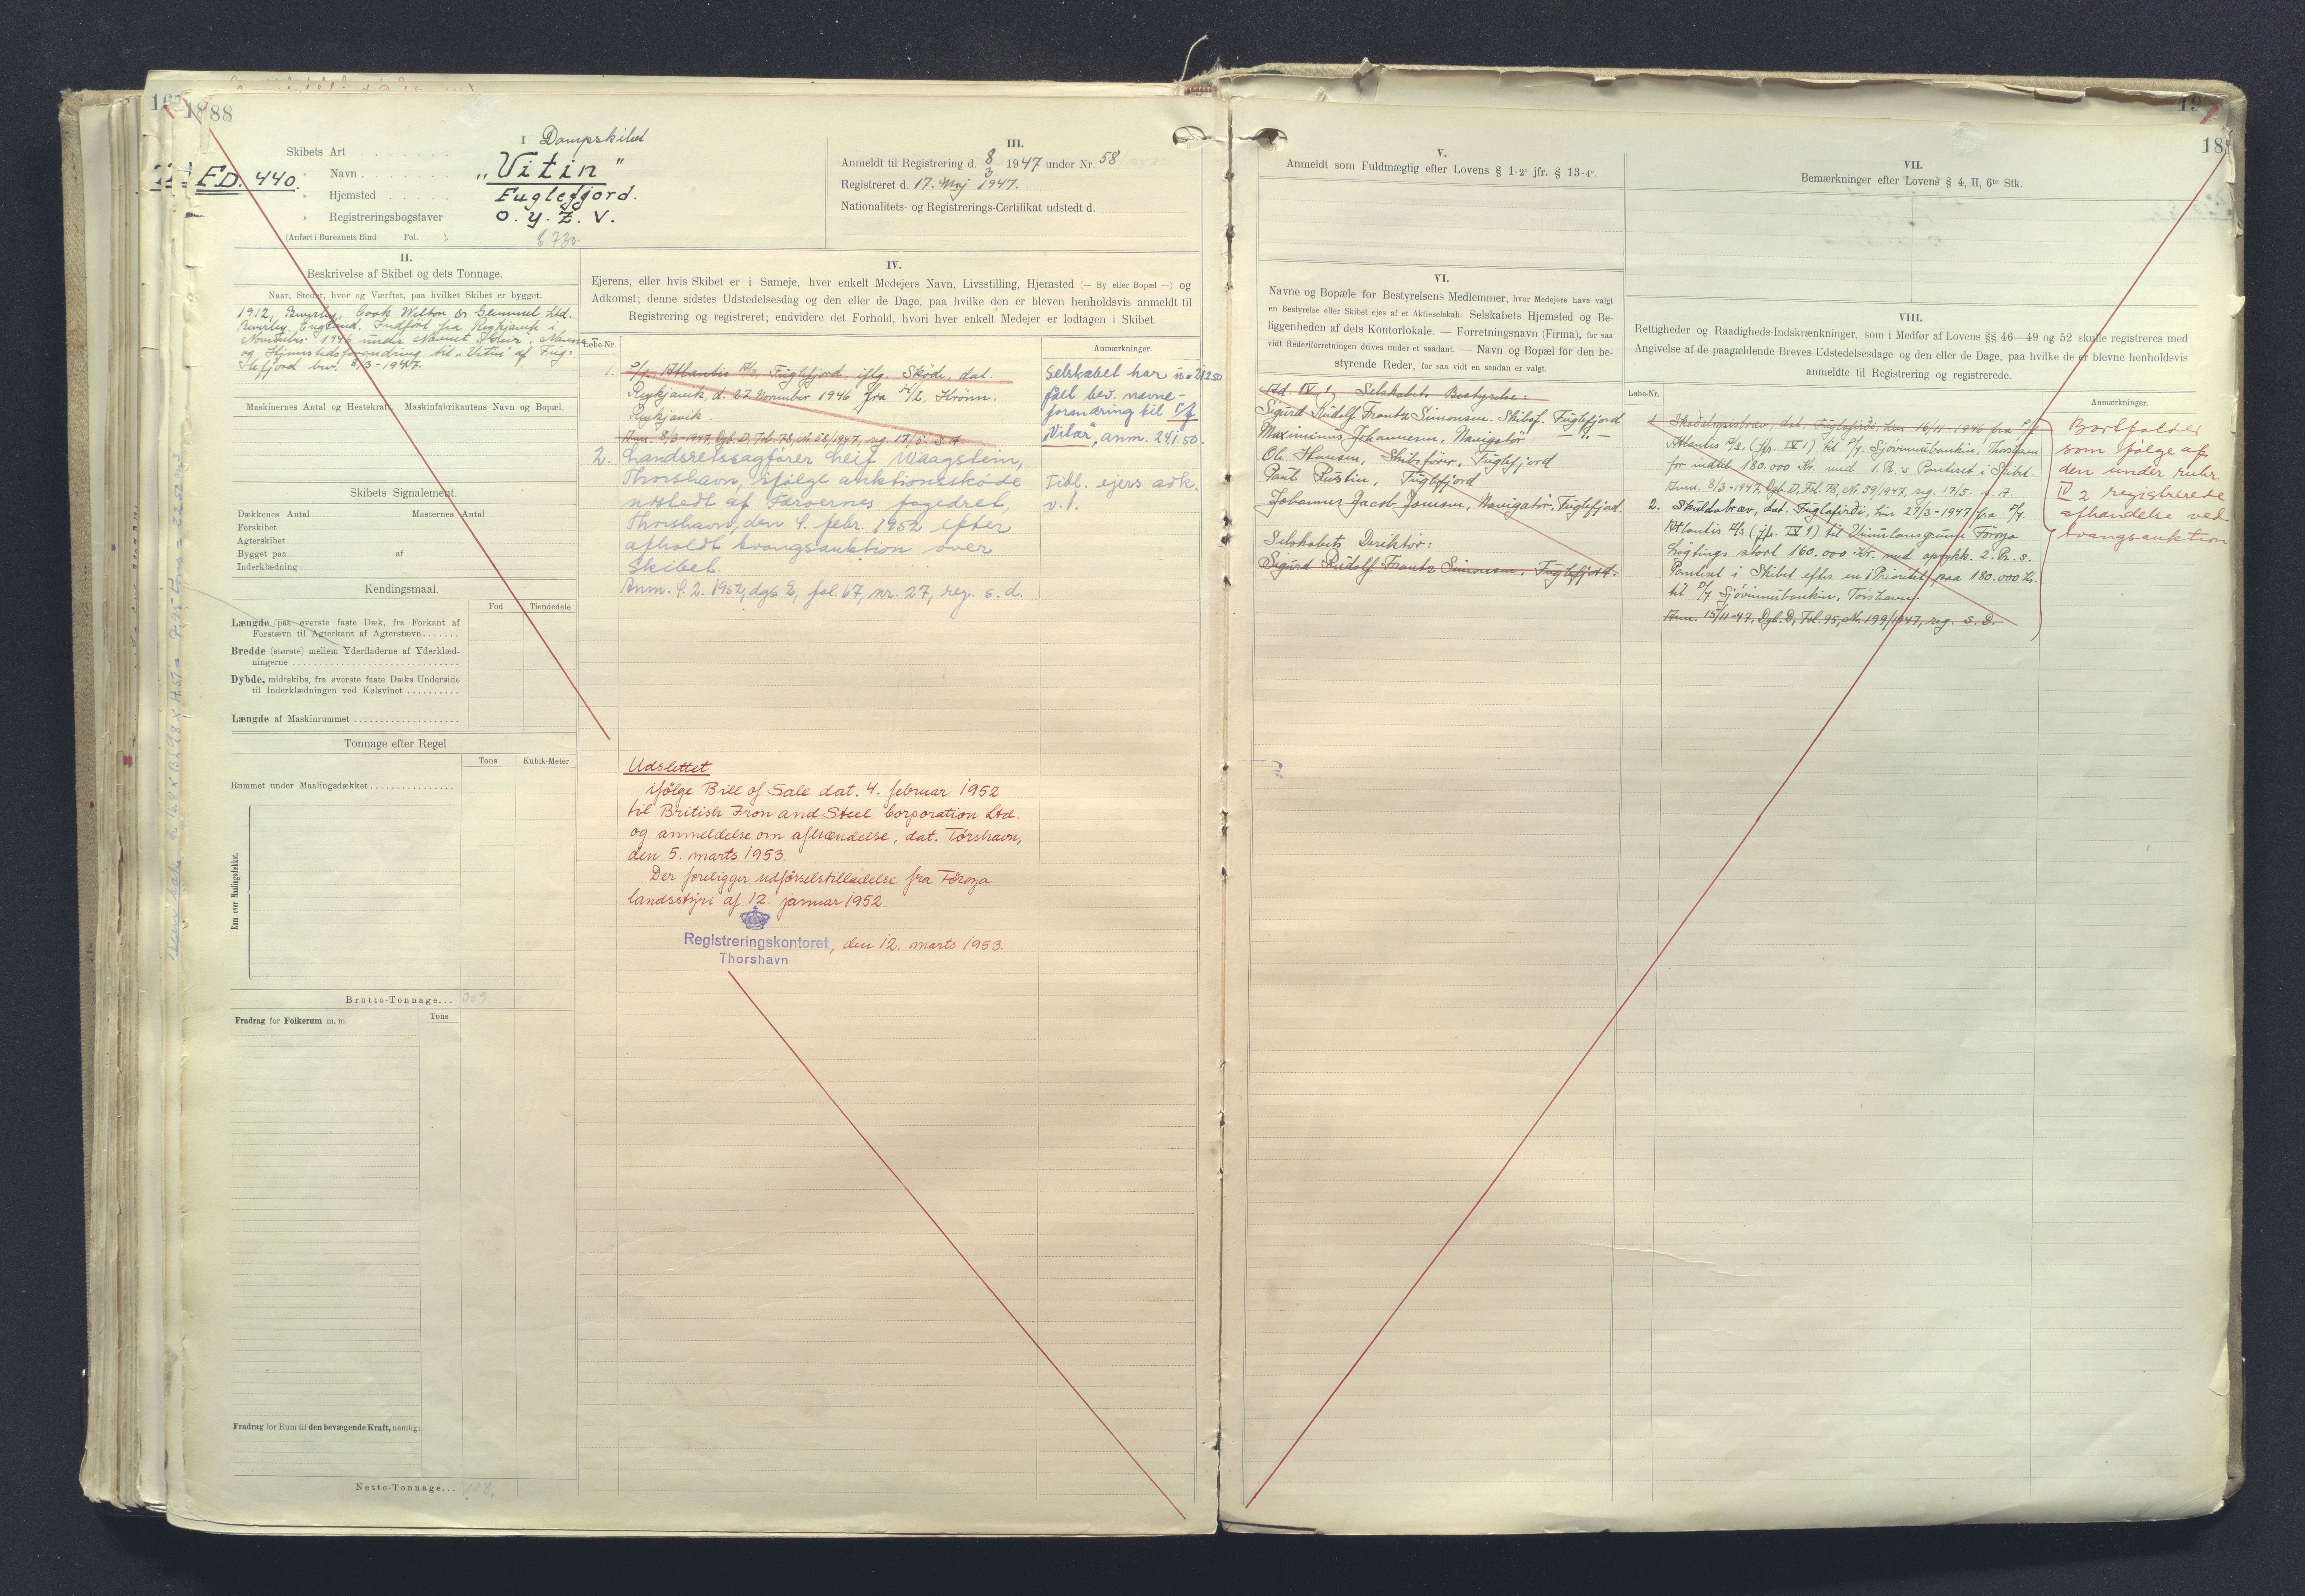 188
FD. 440.
I
Skibets Art Dampskibet
" Navn „Vitin"
" Hjemsted Fuglefjord.
" Registreringsbogstaver O. Y. Z. V.
(Anført i Bureauets Bind Fol. ).
III.
Anmeldt til Registrering d. 8/3 1947 under Nr. 58
Registreret d. 17. Maj 1947.
Nationalitets- og Registrerings-Certifikat udstedt d.
II.
Beskrivelse af Skibet og dets Tonnage.
Naar, Stedet, hvor og Værftet, paa hvilket Skibet er bygget.
1912, Beverley, Cook Welton & Gemmel Ltd.
Beverley England. Indført fra Reykjavik i
November 1946 under Navnet
og Hjemstedsforandring til „Vitin" af Fug-
lefjord bev. 8/3-1947.
Maskinernes Antal og Hestekraft, Maskinfabrikantens Navn og Bopæl.
Skibets Signalement.
Dækkenes Antal . Masternes Antal
Forskibet
Agterskibet
Bygget paa af
Inderklædning
Kendingsmaal.
Fod Tiendedele
Længde paa øverste faste Dæk, fra Forkant af
Forstævn til Agterkant af Agterstævn
Bredde (største) mellem Yderfladerne af Yderklæd-
ningerne
Dybde, midtskibs, fra øverste faste Dæks Underside
til Inderklædningen ved Kølsvinet
Længde af Maskinrummet
Tonnage efter Regel
Tons Kubik-Meter
Rummet under Maalingsdækket
Rum over Maalingsdækket.
Brutto-Tonnage... 309.
Fradrag for Folkerum m. m. Tons
Fradrag for Rum til den bevægende Kraft, nemlig:
Netto-Tonnage...
IV.
Ejerens, eller hvis Skibet er i Sameje, hver enkelt Medejers Navn, Livsstilling, Hjemsted (— By eller Bopæl —) og
Adkomst; denne sidstes Udstedelsesdag og den eller de Dage, paa hvilke den er bleven henholdsvis anmeldt til
Registrering og registreret; endvidere det Forhold, hvori hver enkelt Medejer er lodtagen i Skibet.
Løbe-Nr. Anmærkninger.
1. P/f. Atlantis A/S, Fuglefjord, iflg. Skøde, dat.
Reykjavik, d. 22 November 1946 fra H/f. Hrönn,
Reykjavik.
Anm. 8/3-1947, Dgb. D, Fol. 78, Nr. 58/1947, reg. 17/5. s. A.
Selskabet har
fået bev. navne-
forandring til P/f
„Vitar", anm. 24.1.50.
2. Landsretssagfører Leif Waagstein,
Thorshavn, ifølge auktionsskøde
udstedt af Færøernes fogedret,
Thorshavn, den 4. febr. 1952 efter
afholdt tvangsauktion over
skibet.
Anm. 9. 2. 1952, dgb. E, fol. 67, nr. 27, reg. s. d.
Tidl. ejers adk.
v. 1.
Udslettet
ifølge Bill of Sale dat. 4. februar 1952
til British Iron and Steel Corporation Ltd.
og anmeldelse om afhændelse, dat. Tórshavn,
den 5. marts 1953.
Der foreligger udførselstilladelse fra Føroya
landsstýri af 12. januar 1952.
Registreringskontoret, den 12. marts 1953.
Thorshavn
V.
Anmeldt som Fuldmægtig efter Lovens § 1-2° jfr. § 13-4°.
VI.
Navne og Bopæle for Bestyrelsens Medlemmer, hvor Medejere have valgt
en Bestyrelse eller Skibet ejes af et Aktieselskab; Selskabets Hjemsted og Be-
liggenheden af dets Kontorlokale. — Forretningsnavn (Firma), for saa
vidt Rederiforretningen drives under et saadant. — Navn og Bopæl for den be-
styrende Reder, for saa vidt en saadan er valgt.
Ad. IV 1, Selskabets Bestyrelse:
Sigurd Rudolf Frantz Simonsen. Skibsf. Fuglefjord
Maximinus Johannesen, Navigatør — " —
Ole Hansen, Skibsfører, Fuglefjord
Fuglefjord
Johannes Jacob Joensen, Navigatør, Fuglefjord.
Selskabets Direktør:
Sigurd Rudolf Frantz Simonsen, Fuglefjord.
VII.
Bemærkninger efter Lovens § 4, II, 6te Stk.
VIII.
Rettigheder og Raadigheds-Indskrænkninger, som i Medfør af Lovens §§ 46—49 og 52 skulle registreres med
Angivelse af de paagældende Breves Udstedelsesdage og den eller de Dage, paa hvilke de er blevne henholdsvis
anmeldte til Registrering og registrerede.
Løbe-Nr. Anmærkninger.
1. Skadesløsbrev, dat. Fuglafirði, hin 16/11-1946 fra P/f
Atlantis A/S. (jfr. IV 1) til P/f. Sjóvinnubankin, Thorshavn
for indtil 180.000 Kr. med 1. Pr. s Panteret i Skibet.
Anm. 8/3-1947, Dgb. D, Fol. 78, Nr. 59/1947, reg. 17/5. s. A.
2. Skuldabræv, dat. Fuglafirði, hin 27/3-1947 fra P/f.
Atlantis A/S (jfr. IV 1) til Føroya
Løgtings stort 160.000 Kr. med oprykk. 2. Pr. s.
Panteret i Skibet efter en 1 Prioritet paa 180.000 Kr.
til P/f Sjóvinnubankin, Tórshavn.
Anm. 15/11-47, Dgb. D, Fol. 95, Nr. 199/1947, reg. s. D.
Bortfaldet
som følge af
den under rubr.
IV 2 registrerede
afhændelse ved
tvangsauktion